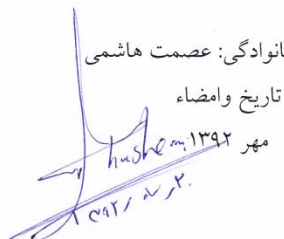 انوادگی: عصمت هاشمی
تاریخ وامضاء
مهر ۱۳۹۲
hashemi